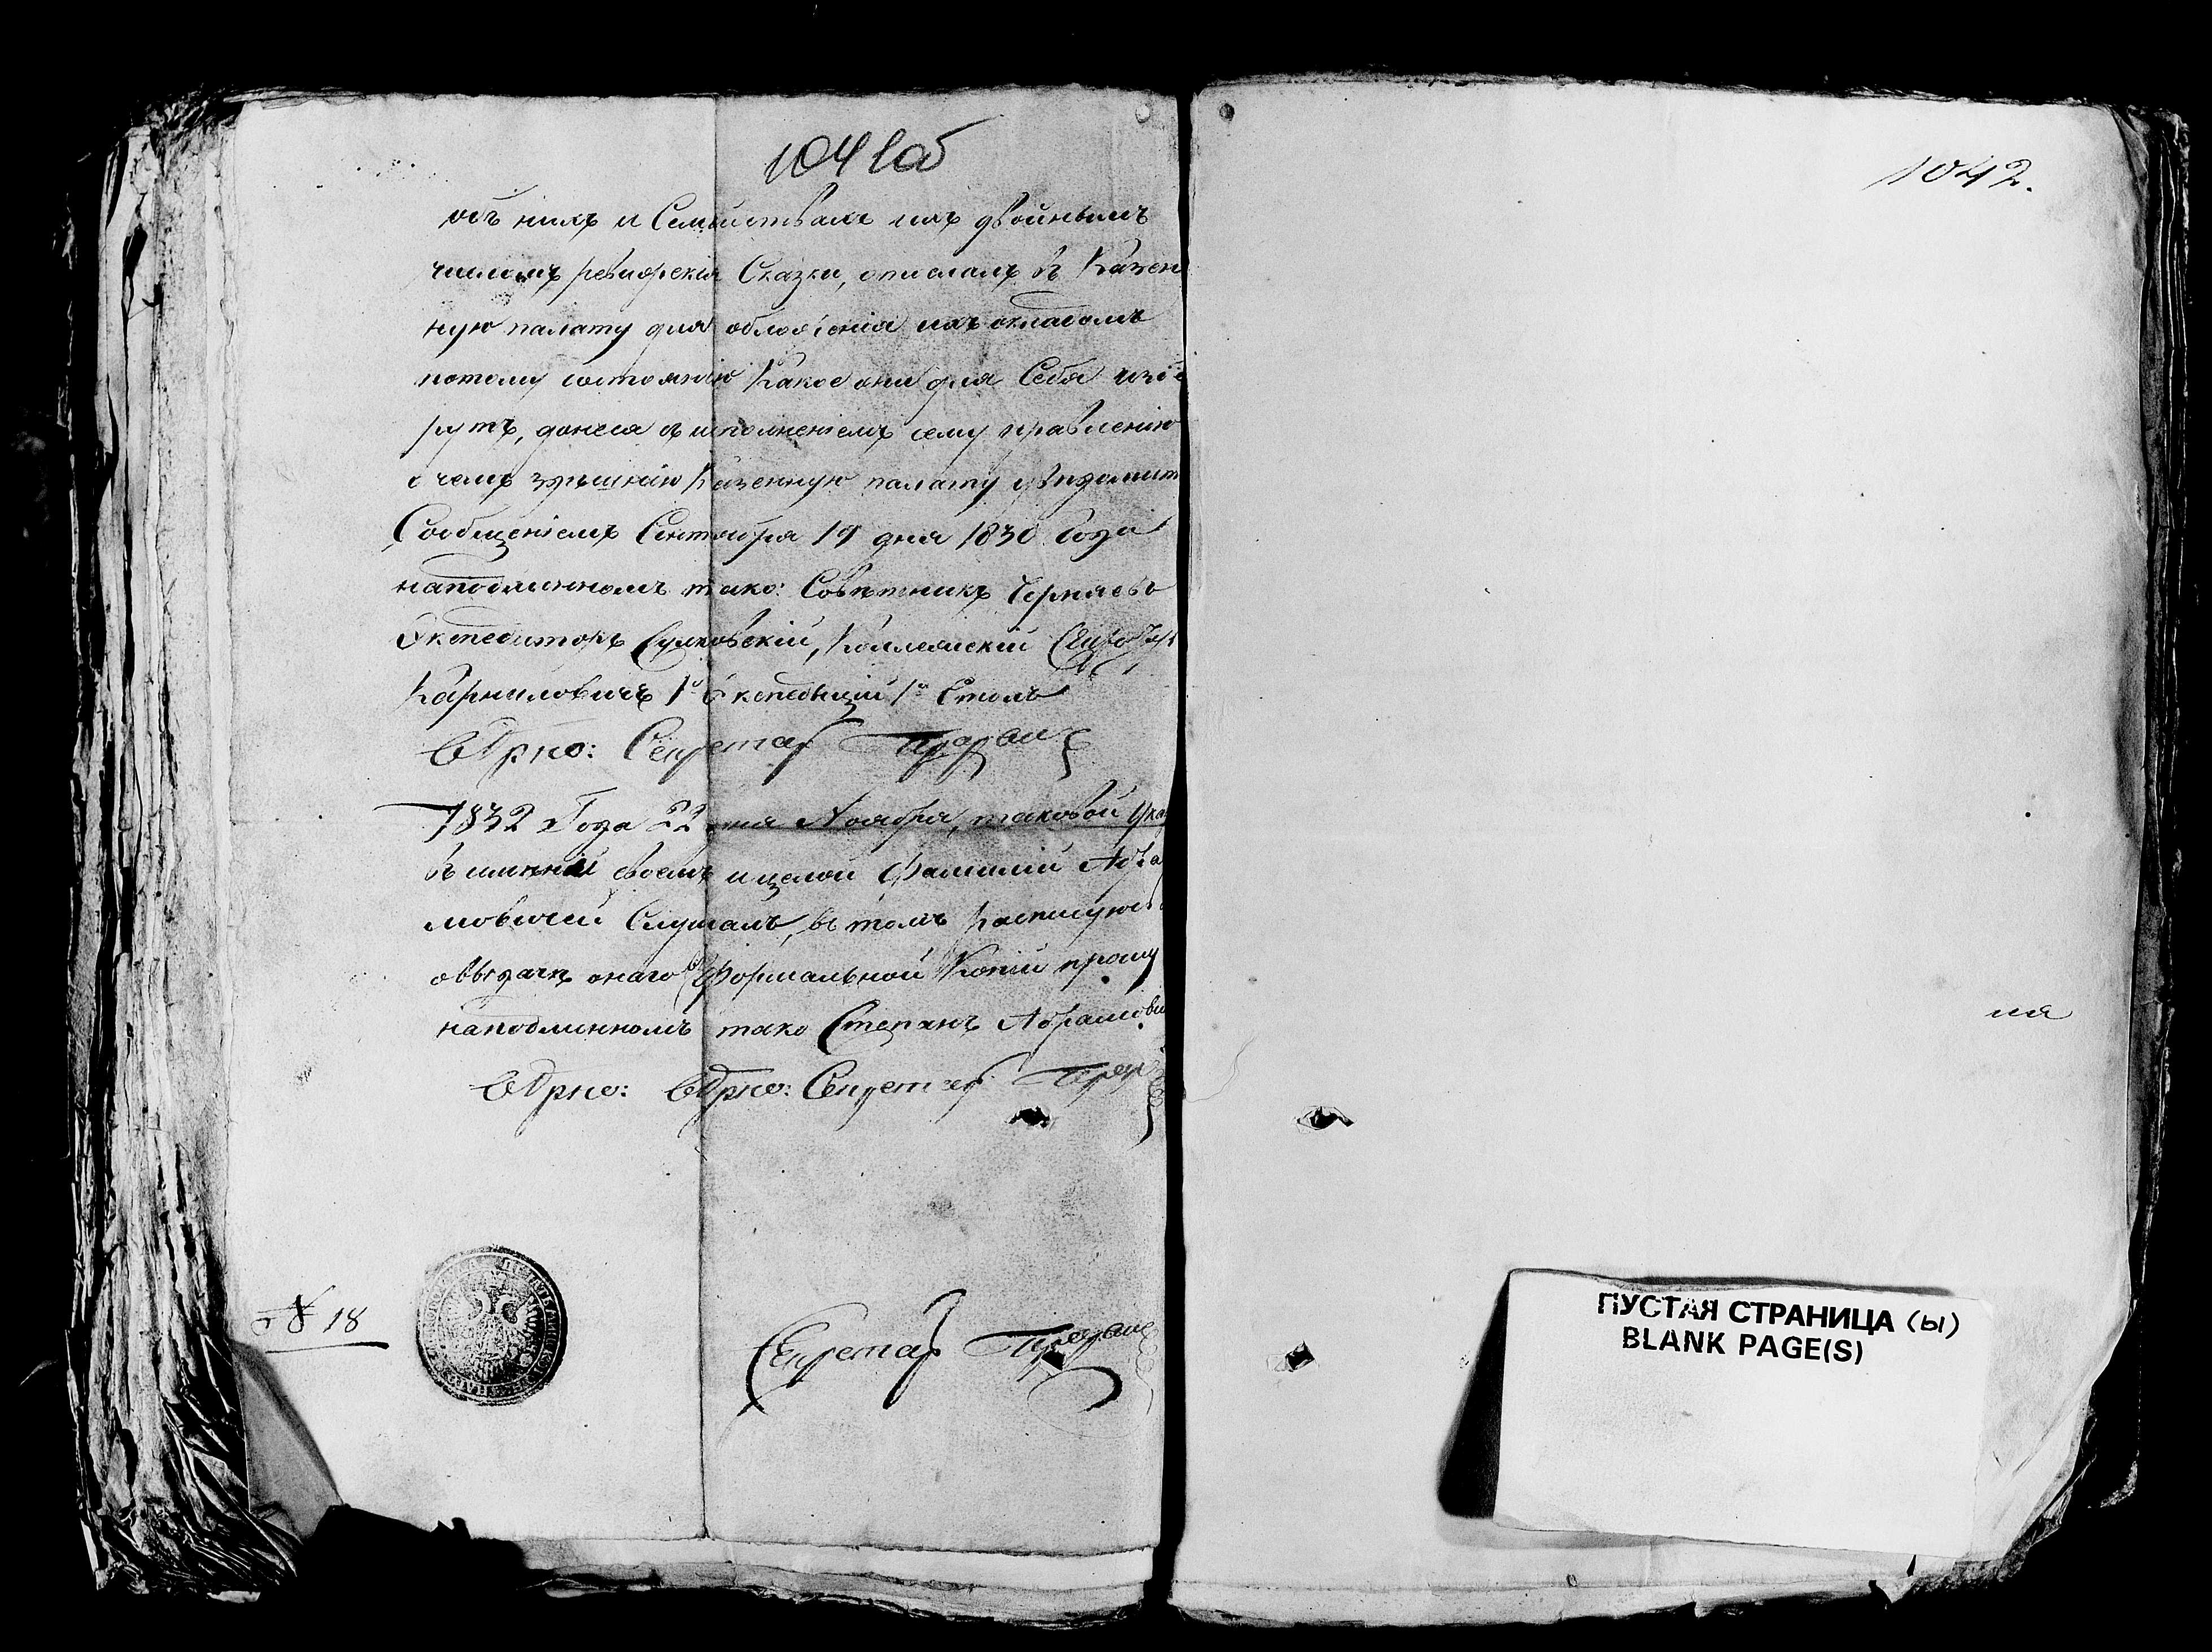 1041об
объ нихъ и Семействахъ ихъ двойнымъ
числомъ ревизрскія Сказки, отислалъ въ Казен
ную палату для обложенія ихъ окладомъ
потому состоянію Какое они для Себя избе
рутъ, донеся о исполненіемъ сему правленію
о чемъ здешнюю Казенную палату увѣдомит
Сообщеніемъ Сентября 19 дня 1830 Года
наподлинномъ тако: Совѣтникъ Черняевъ
Экспедиторъ Сулковскій, Коллежскій
Карниловичъ 1й Экспедиціи 1й Столъ
Вѣрно: Секретарь
1832 Года 22 дня Ноября, таковой Указ
въ имяни своемъ и целой Фамиліи Абра
мовичей Слушалъ, въ томъ Росписуюсь
о выдачѣ онаго Формальной Копіи прошу
наподлинномъ тако Степанъ Абрамови
Вѣрно: Вѣрно: Секретарь
№ 18
Секретарь
1042.
ия
ПУСТАЯ СТРАНИЦА (Ы)
BLANK PAGE(S)